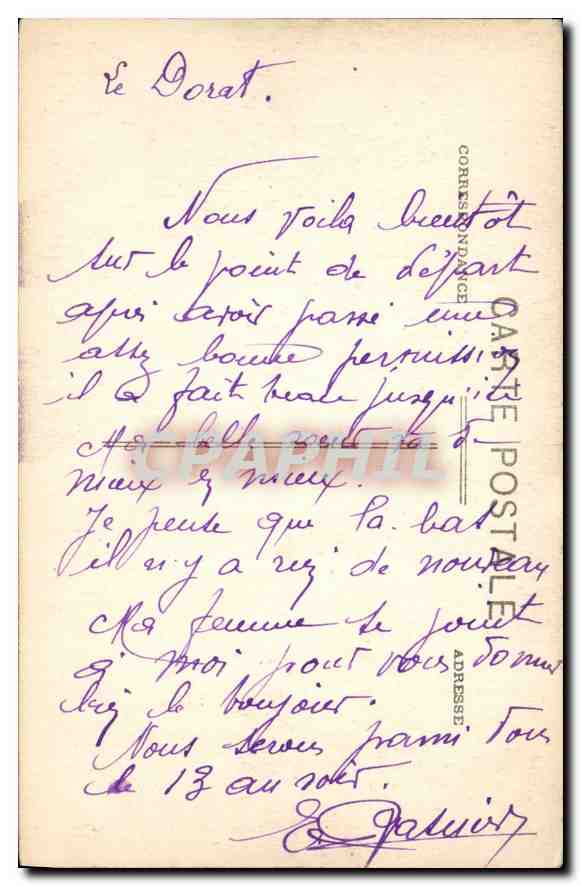 Le Dorat.
Nous voila bientôt
sur le point de départ
après avoir passé une
assez bonne permission
il a fait beau jusqu'ici
Ma belle sœur va de
mieux en mieux.
Je pense que la bas
il n y a rien de nouveau
Ma femme se joint
a moi pour vous donner
bien le bonjour.
Nous serons parmi vous
le 13 au soir.
CARTE POSTALE
CORRESPONDANCE
ADRESSE
CPAPHIL